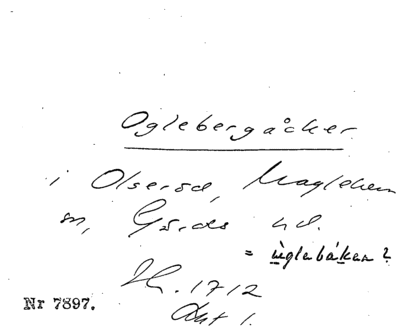 Oglebergåcker
i Olseröd, Maglehem
sn, Gärds hd.
= ùglebákan?
Lh. 1712
Akt 1.
Nr 7897.